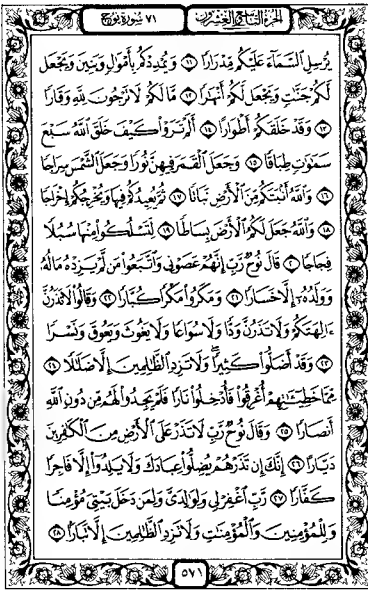 الجزء التاسع والعشرون
٧١ سورة نوح
يُرْسِلِ السَّمَاءَ عَلَيْكُم مِّدْرَارًا ١١ وَيُمْدِدْكُم بِأَمْوَالٍ وَبَنِينَ وَيَجْعَل
لَّكُمْ جَنَّاتٍ وَيَجْعَل لَّكُمْ أَنْهَارًا ١٢ مَّا لَكُمْ لَا تَرْجُونَ لِلَّهِ وَقَارًا
١٣ وَقَدْ خَلَقَكُمْ أَطْوَارًا ١٤ أَلَمْ تَرَوْا كَيْفَ خَلَقَ اللَّهُ سَبْعَ
سَمَاوَاتٍ طِبَاقًا ١٥ وَجَعَلَ الْقَمَرَ فِيهِنَّ نُورًا وَجَعَلَ الشَّمْسَ سِرَاجًا
١٦ وَاللَّهُ أَنبَتَكُم مِّنَ الْأَرْضِ نَبَاتًا ١٧ ثُمَّ يُعِيدُكُمْ فِيهَا وَيُخْرِجُكُمْ إِخْرَاجًا
١٨ وَاللَّهُ جَعَلَ لَكُمُ الْأَرْضَ بِسَاطًا ١٩ لِّتَسْلُكُوا مِنْهَا سُبُلًا
فِجَاجًا ٢٠ قَالَ نُوحٌ رَّبِّ إِنَّهُمْ عَصَوْنِي وَاتَّبَعُوا مَن لَّمْ يَزِدْهُ مَالُهُ
وَوَلَدُهُ إِلَّا خَسَارًا ٢١ وَمَكَرُوا مَكْرًا كُبَّارًا ٢٢ وَقَالُوا لَا تَذَرُنَّ
آلِهَتَكُمْ وَلَا تَذَرُنَّ وَدًّا وَلَا سُوَاعًا وَلَا يَغُوثَ وَيَعُوقَ وَنَسْرًا
٢٣ وَقَدْ أَضَلُّوا كَثِيرًا وَلَا تَزِدِ الظَّالِمِينَ إِلَّا ضَلَالًا ٢٤
مِّمَّا خَطِيئَاتِهِمْ أُغْرِقُوا فَأُدْخِلُوا نَارًا فَلَمْ يَجِدُوا لَهُم مِّن دُونِ اللَّهِ
أَنصَارًا ٢٥ وَقَالَ نُوحٌ رَّبِّ لَا تَذَرْ عَلَى الْأَرْضِ مِنَ الْكَافِرِينَ
دَيَّارًا ٢٦ إِنَّكَ إِن تَذَرْهُمْ يُضِلُّوا عِبَادَكَ وَلَا يَلِدُوا إِلَّا فَاجِرًا
كَفَّارًا ٢٧ رَّبِّ اغْفِرْ لِي وَلِوَالِدَيَّ وَلِمَن دَخَلَ بَيْتِيَ مُؤْمِنًا
وَلِلْمُؤْمِنِينَ وَالْمُؤْمِنَاتِ وَلَا تَزِدِ الظَّالِمِينَ إِلَّا تَبَارًا ٢٨
٥٧١